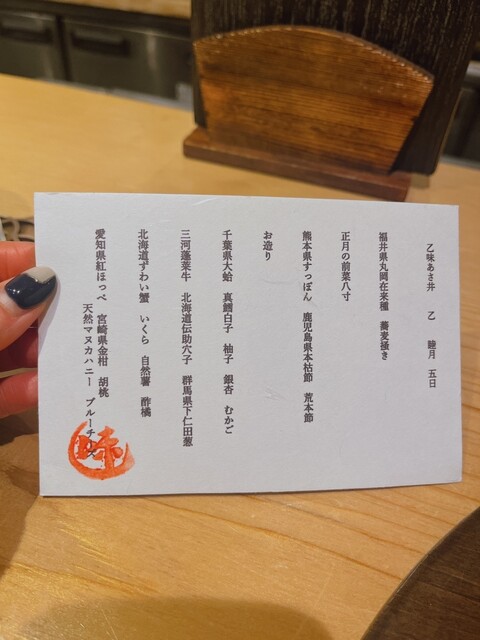 乙味あさ井　乙　睦月　五日
福井県丸岡在来種　蕎麦掻き
正月の前菜八寸
熊本県すっぽん　鹿児島県本枯節　荒本節
お造り
千葉県大蛤　真鱈白子　柚子　銀杏　むかご
三河蓬莱牛　北海道伝助穴子　群馬県下仁田葱
北海道ずわい蟹　いくら　自然薯　酢橘
愛知県紅ほっぺ　宮崎県金柑　胡桃
天然マヌカハニー　ブルーチーズ
味